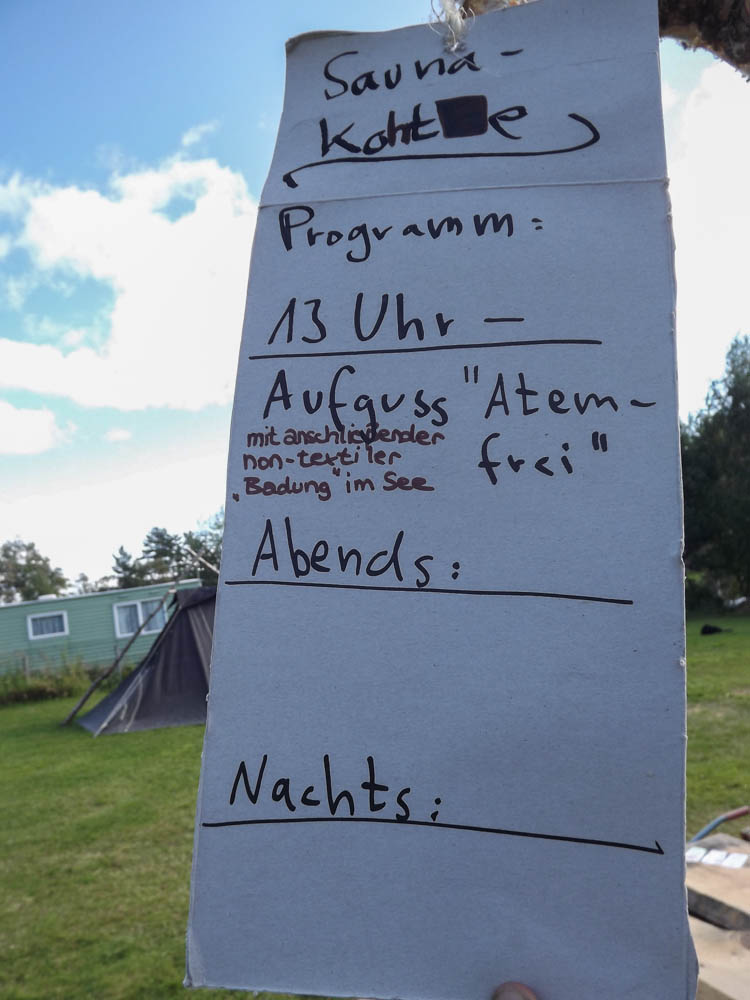 Sauna-
Kohte
Programm:
13 Uhr –
Aufguss "Atem-
frei"
mit anschließender
non-textiler
„Badung" im See
Abends:
Nachts: